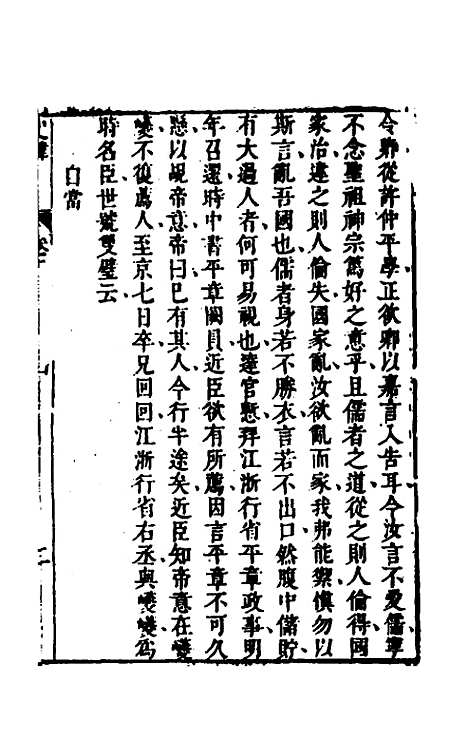 令卿從許仲平學正欲卿以嘉言入告耳今汝言不愛儒寧
不念聖祖神宗篤好之意乎且儒者之道從之則人倫得國
家治違之則人倫失國家亂汝欲亂而家我弗能禦慎勿以
斯言亂吾國也儒者身若不勝衣言若不出口然腹中儲貯
有大過人者何可易視也達官慙拜江浙行省平章政事明
年召還時中書平章闕員近臣欲有所薦因言平章不可久
懸以覘帝意帝曰已有其人今行半途矣近臣知帝意在巎
巎不復薦人至京七日卒兄回回江浙行省右丞與巎巎爲
時名臣世號雙璧云
白當